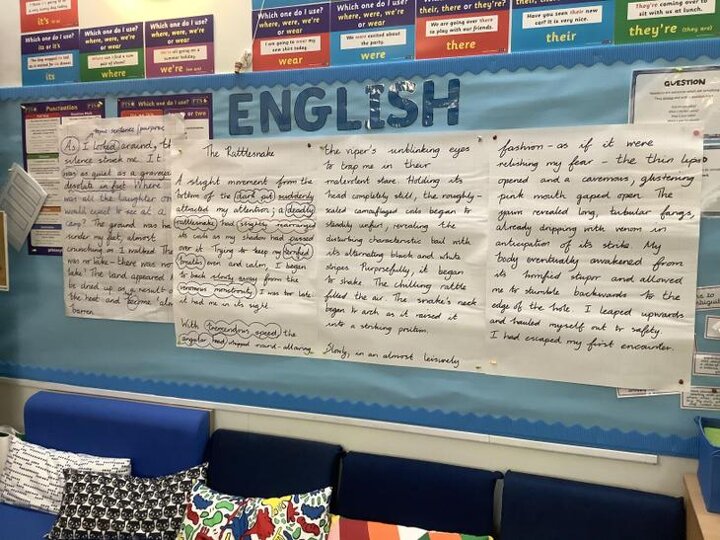 it's
Which one do I use?
its or it's
its
Which one do I use?
where, were, we're
or wear
where
Which one do I use?
where, were, we're
or wear
we're (we are)
where, were, we're
or wear
I am going to wear my
new shirt today.
wear
where, were, we're
or wear
We were excited about the
party.
were
their, there or they're?
We are going over there
to play with our friends.
there
their, there or they're?
Have you seen their new
car? It is very nice.
their
They're coming over to
sit with us at lunch.
they're (they are)
ENGLISH
QUESTION
Punctuation
Which one do I use?
As I looked around, the
silence struck me. It
was as quiet as a graveyard
desolate in fact. Where
was all the laughter
would expect to see at a
The ground was
under my feet, almost
crunching as I walked. The
was no lake - there was no
lake! The land appeared
be dried up as a result
the heat and
barren.
The Rattlesnake
A slight movement from the
bottom of the dark pit suddenly
attracted my attention; a deadly
rattlesnake had slightly rearranged
its coils as my shadow had passed
over it. Trying to keep my terrified
breaths even and calm, I began
to back slowly away from the
venomous monstrosity. I was too late
it had me in its sight.
With tremendous speed, the
angular head whipped round - allowing
the viper's unblinking eyes
to trap me in their
malevolent stare. Holding its
head completely still, the roughly-
scaled camouflaged coils began to
steadily unfurl, revealing the
disturbing characteristic tail with
its alternating black and white
stripes. Purposefully, it began
to shake. The chilling rattle
filled the air. The snake's neck
began to arch as it raised it
into a striking position.
Slowly, in an almost leisurely
fashion - as if it were
relishing my fear - the thin lips
opened and a cavernous, glistening
pink mouth gaped open. The
yawn revealed long, tubular fangs,
already dripping with venom in
anticipation of its strike. My
body eventually awakened from
its horrified stupor and allowed
me to stumble backwards to the
edge of the hole. I leaped upwards
and hauled myself out to safety.
I had escaped my first encounter.